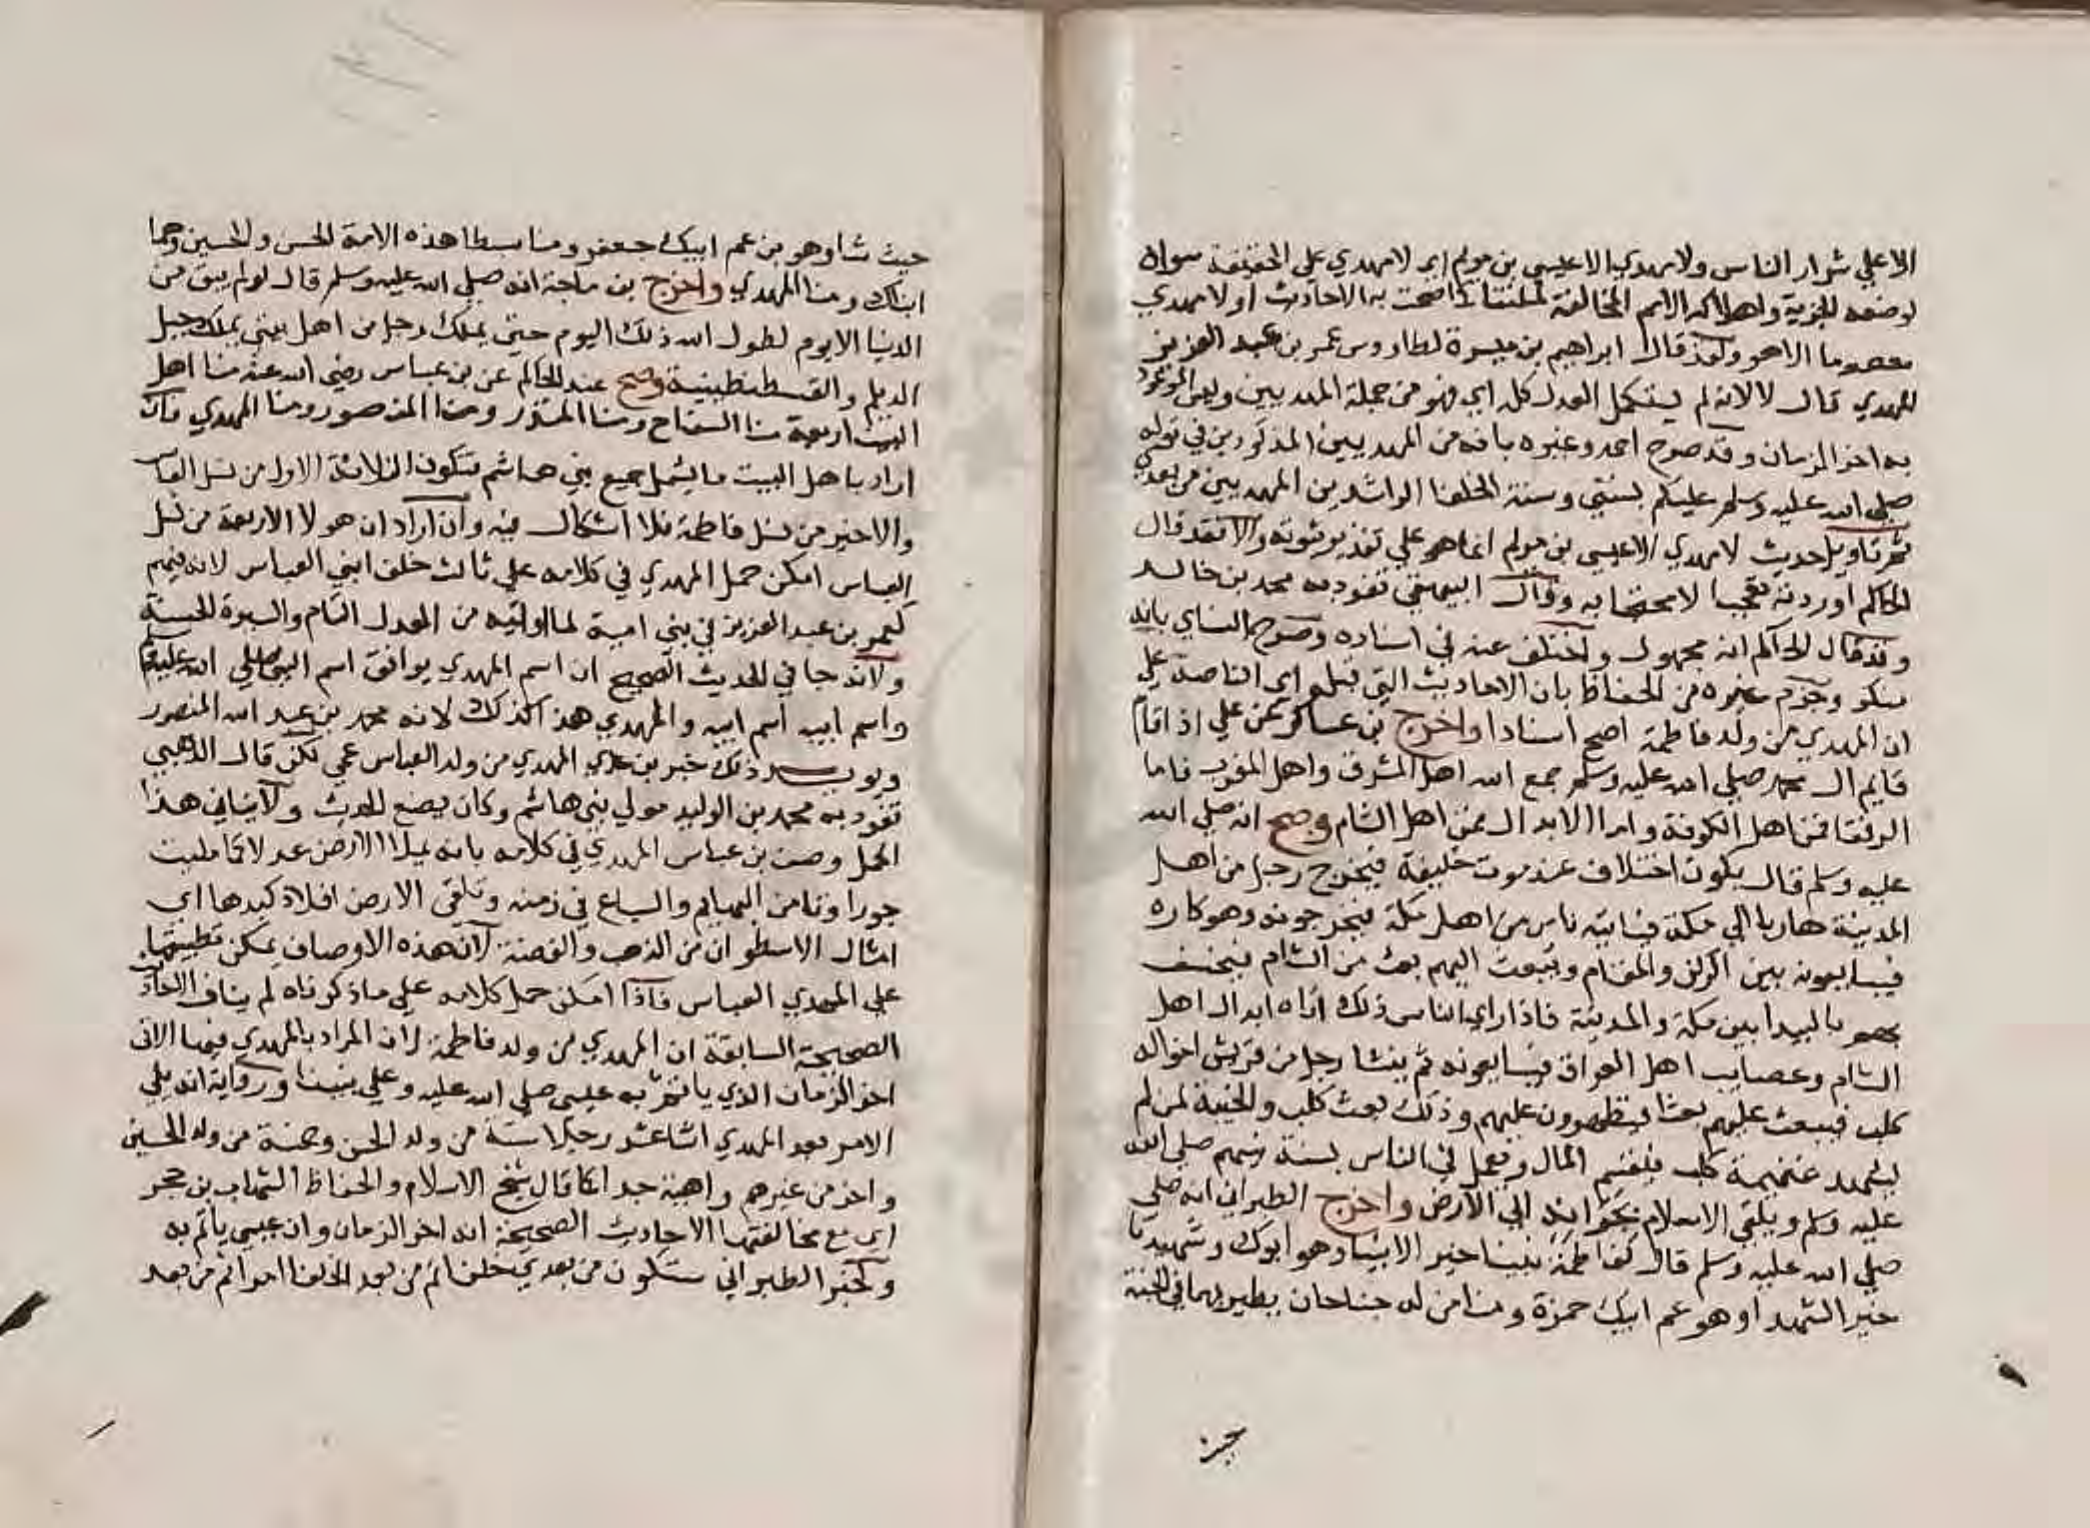 الا علي شرار الناس ولا مهدي الا عيسي بن مريم اي لا مهدي علي الحقيقة سواه
لوضعه الجزية واهلاكه الامم المخالفة لملتنا كما صحت به الاحاديث او لا مهدي
معصوما الا هو ولقد قال ابراهيم بن ميسرة لطاووس عمر بن عبد العزيز
المهدي قال لا لانه لم يستكمل العدل كله اي فهو من جملة المهديين وليس الموعود
به اخر الزمان وقد صرح احمد وغيره بانه من المهديين المذكورين في قوله
صلي الله عليه وسلم عليكم بسنتي وسنة الخلفا الراشدين المهديين من بعدي
ثم تاويل حديث لا مهدي الا عيسي بن مريم انما هو علي تقدير ثبوته والا فقد قال
الحاكم اوردته تعجبا لا محتجا به وقال البيهقي تفرد به محمد بن خالد
وقد قال الحاكم انه مجهول واختلف عنه في اسناده وصرح النساي بانه
منكر وجزم غيره من الحفاظ بان الاحاديث التي قبله اي الناصة علي
ان المهدي من ولد فاطمة اصح اسنادا واخرج بن عساكر عن علي اذا قام
قايم ال محمد صلي الله عليه وسلم جمع الله اهل المشرق واهل المغرب فاما
الرفقا فمن اهل الكوفة واما الابدال فمن اهل الشام وصح انه صلي الله
عليه وسلم قال يكون اختلاف عند موت خليفة فيخرج رجل من اهل
المدينة هاربا الي مكة فياتيه ناس من اهل مكة فيخرجونه وهو كاره
فيبايعونه بين الركن والمقام ويبعث اليهم بعث من الشام فيخسف
بهم بالبيدا بين مكة والمدينة فاذا راي الناس ذلك اتاه ابدال اهل
الشام وعصايب اهل العراق فيبايعونه ثم ينشا رجل من قريش اخواله
كلب فيبعث عليهم بعثا فيظهرون عليهم وذلك بعث كلب والخيبة لمن لم
يشهد غنيمة كلب فيقسم المال ويعمل في الناس بسنة نبيهم صلي الله
عليه وسلم ويلقي الاسلام بجرانه الي الارض واخرج الطبراني انه صلي
صلي الله عليه وسلم قال لفاطمة نبينا خير الانبيا وهو ابوك وشهيدنا
خير الشهدا وهو عم ابيك حمزة ومنا من له جناحان يطير بهما في الجنة
حيث
حيث شا وهو بن عم ابيك جعفر ومنا سبطا هذه الامة الحسن والحسين وهما
ابناك ومنا المهدي واخرج بن ماجة انه صلي الله عليه وسلم قال لو لم يبق من
الدنيا الا يوم لطول الله ذلك اليوم حتي يملك رجل من اهل بيتي يملك جبل
الديلم والقسطنطينية وصح عند الحاكم عن بن عباس رضي الله عنه منا اهل
البيت اربعة منا السفاح ومنا المنذر ومنا المنصور ومنا المهدي فان
اراد باهل البيت ما يشمل جميع بني هاشم فتكون الثلاثة الاول من نسل العباس
والاخير من نسل فاطمة فلا اشكال فيه وان اراد ان هولا الاربعة من نسل
العباس امكن حمل المهدي في كلامه علي ثالث خلفا بني العباس لانه فيهم
كعمر بن عبد العزيز في بني امية لما اوتيه من العدل التام والسيرة الحسنة
ولانه جا في الحديث الصحيح ان اسم المهدي يوافق اسم النبي صلي الله عليه وسلم
واسم ابيه اسم ابيه والمهدي هذا كذلك لانه محمد بن عبد الله المنصور
ويويد ذلك خبر بن عدي المهدي من ولد العباس عمي لكن قال الذهبي
تفرد به محمد بن الوليد مولي بني هاشم وكان يضع الحديث ولا ينافي هذا
الحمل وصف بن عباس المهدي في كلامه بانه يملا الارض عدلا كما مليت
جورا وتامن البهايم والسباع في زمنه وتلقي الارض افلاذ كبدها اي
امثال الاسطوان من الذهب والفضة لان هذه الاوصاف يمكن تطبيقها
علي المهدي العباس فاذا امكن حمل كلامه علي ما ذكرناه لم يناف الاحاديث
الصحيحة السابقة ان المهدي من ولد فاطمة لان المراد بالمهدي فيها الاتي
اخر الزمان الذي ياتم به عيسي صلي الله عليه وعلي نبينا ورواية انه يلي
الامر بعد المهدي اثنا عشر رجلا ستة من ولد الحسن وخمسة من ولد الحسين
واخر من غيرهم واهية جدا كما قال شيخ الاسلام والحفاظ الشهاب بن حجر
اي مع مخالفتها الاحاديث الصحيحة انه اخر الزمان وان عيسي ياتم به
ولخبر الطبراني ستكون من بعدي خلفا ثم من بعد الخلفا امرا ثم من بعد